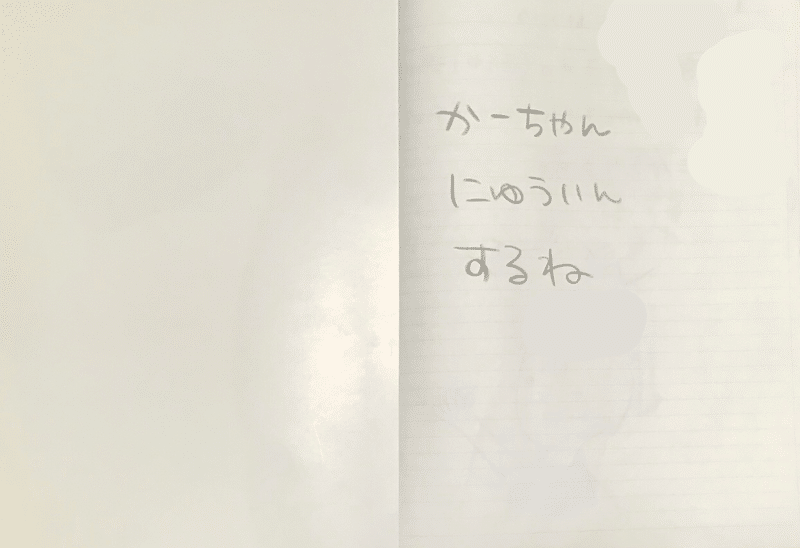 かーちゃん
にゅういん
するね